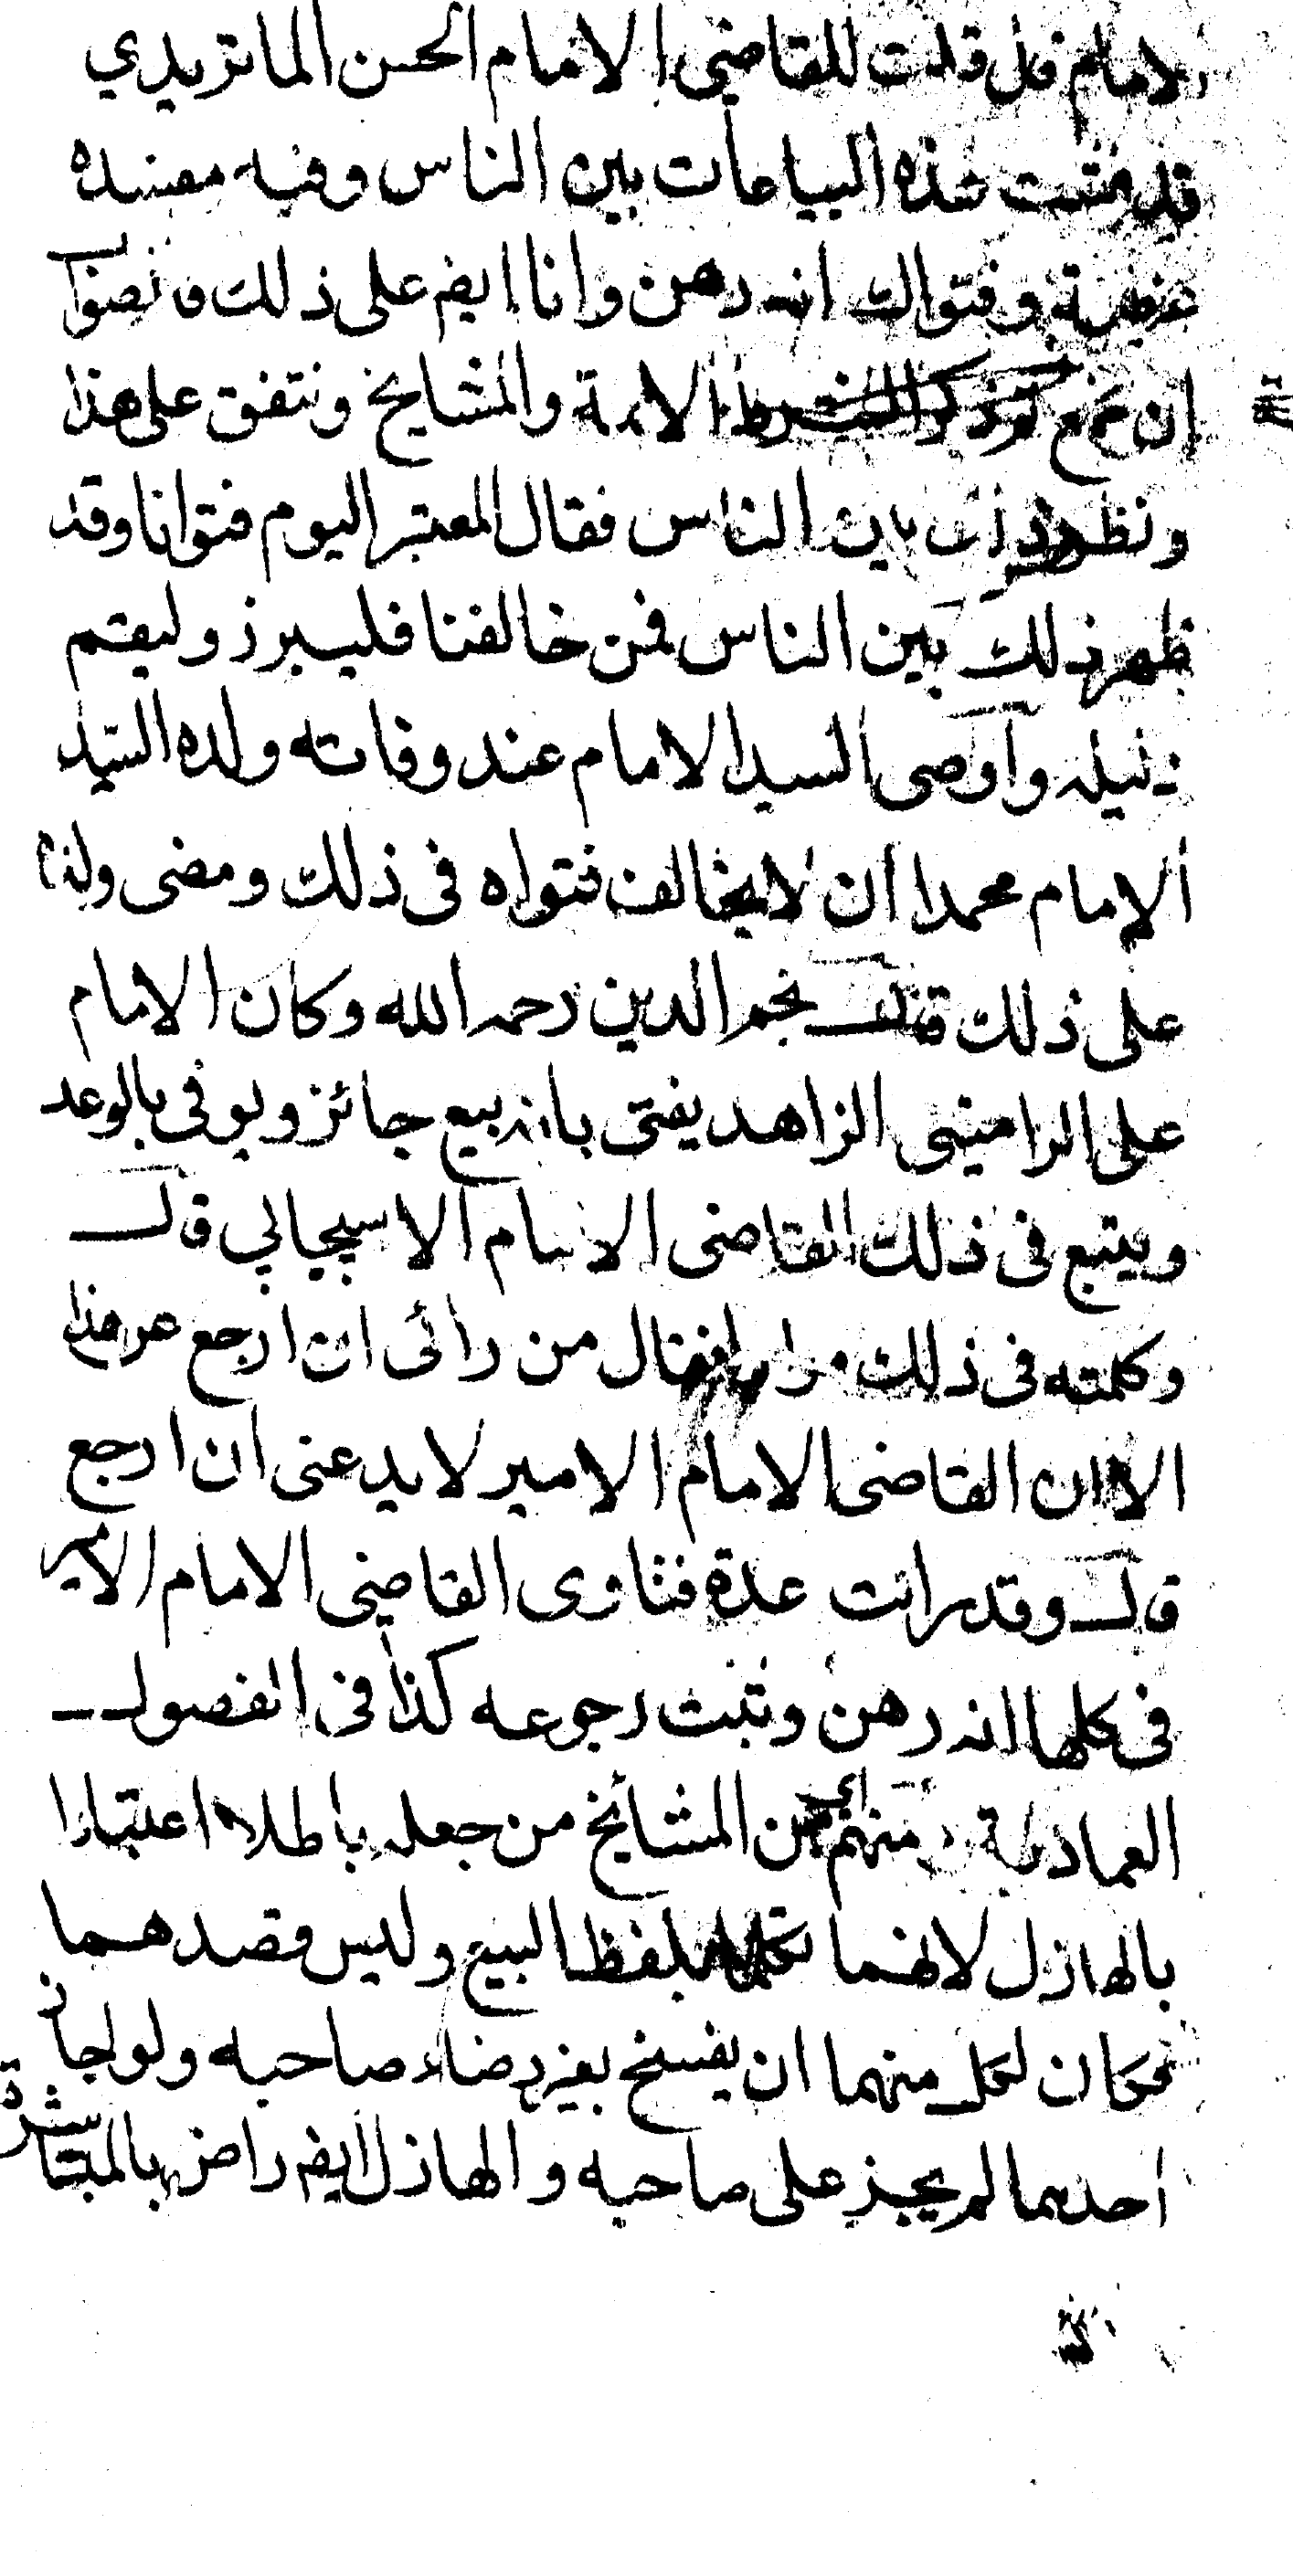 الامام قال قلت للقاضى الامام الحسن الماتريدي
قد فشت هذه البياعات بين الناس وفيه مفسده
عظيمة وفتواك انه رهن وانا ايضم على ذلك فالصواب
ان نجمع الايمة والمشايخ ونتفق على هذا
ونظهر ذلك بين الناس فقال المعتبر اليوم فتوانا وقد
ظهر ذلك بين الناس فمن خالفنا فليبرز وليقم
دليله واوصى السيد الامام عند وفاته ولده السيد
الامام محمدا ان لا يخالف فتواه فى ذلك ومضى ولذا
على ذلك قال نجم الدين رحمه الله وكان الامام
على الرامينى الزاهد يفتى بانه بيع جائز ويوفى بالوعد
ويتبع فى ذلك القاضى الامام الاسبيجابي قال
وكلمته فى ذلك مرارا فقال من رائى ان ارجع عن هذا
الا ان القاضى الامام الامير لا يدعنى ان ارجع
قال وقد رايت عدة فتاوى القاضى الامام الامير
فى كلها انه رهن وثبت رجوعه كذا فى الفصول
العمادية ومنهم اى من المشائخ من جعله باطلا اعتبارا
بالهازل لانهما تكلما بلفظ البيع وليس قصدهما
فكان لكل منهما ان يفسخ بغير رضاء صاحبه ولو اجاز
احدهما لم يجز على صاحبه والهازل ايضم راض بالمباشرة